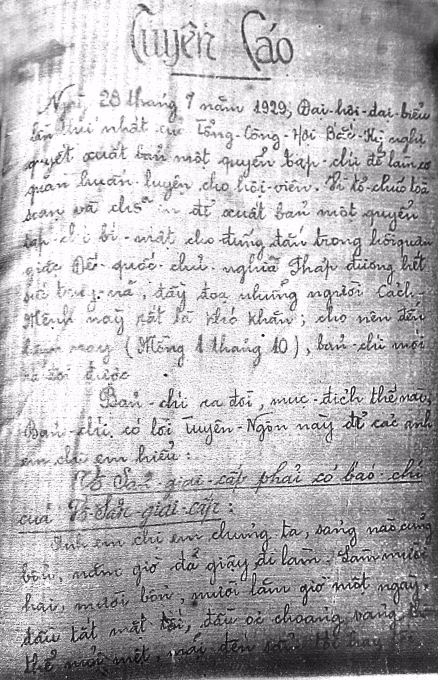 Tuyên Cáo
Ngày 28 tháng 7 năm 1929, Đai-hôi-dai-biểu
lần thứ nhất của Tổng-Công-Hôi Bắc-Kỳ nghị
quyết xuất bản một quyển tạp-chí để làm cơ
quan huấn-luyện cho hôi-viên. Vì tổ-chức toà
soạn và chỗ in để xuất bản một quyển
tap-chí bí-mât cho đứng đắn trong hồi quân
giặc Đế-quốc-chủ-nghĩa Pháp đương hết
sức truy-nã, đầy đoạ những người Cách-
Mệnh này rất là khó khăn; cho nên đến
hôm nay (Mồng 1 tháng 10), bản-chí mới
ra đời được.
Bản-chí ra đời, muc-đích thế nào,
Bản-chí có lời Tuyên-Ngôn này để các anh
em chi em hiểu:
Vô-Sản-giai-cấp phải có báo-chí
của Vô-Sản-giai-cấp:
Anh em chi em chúng ta, sáng nào cũng
bốn, năm giờ đã giậy đi làm. Làm mười
hai, mười bốn, mười lăm giờ một ngày,
đầu tắt mặt tối, đầu óc choáng váng,
thể mỏi mệt,